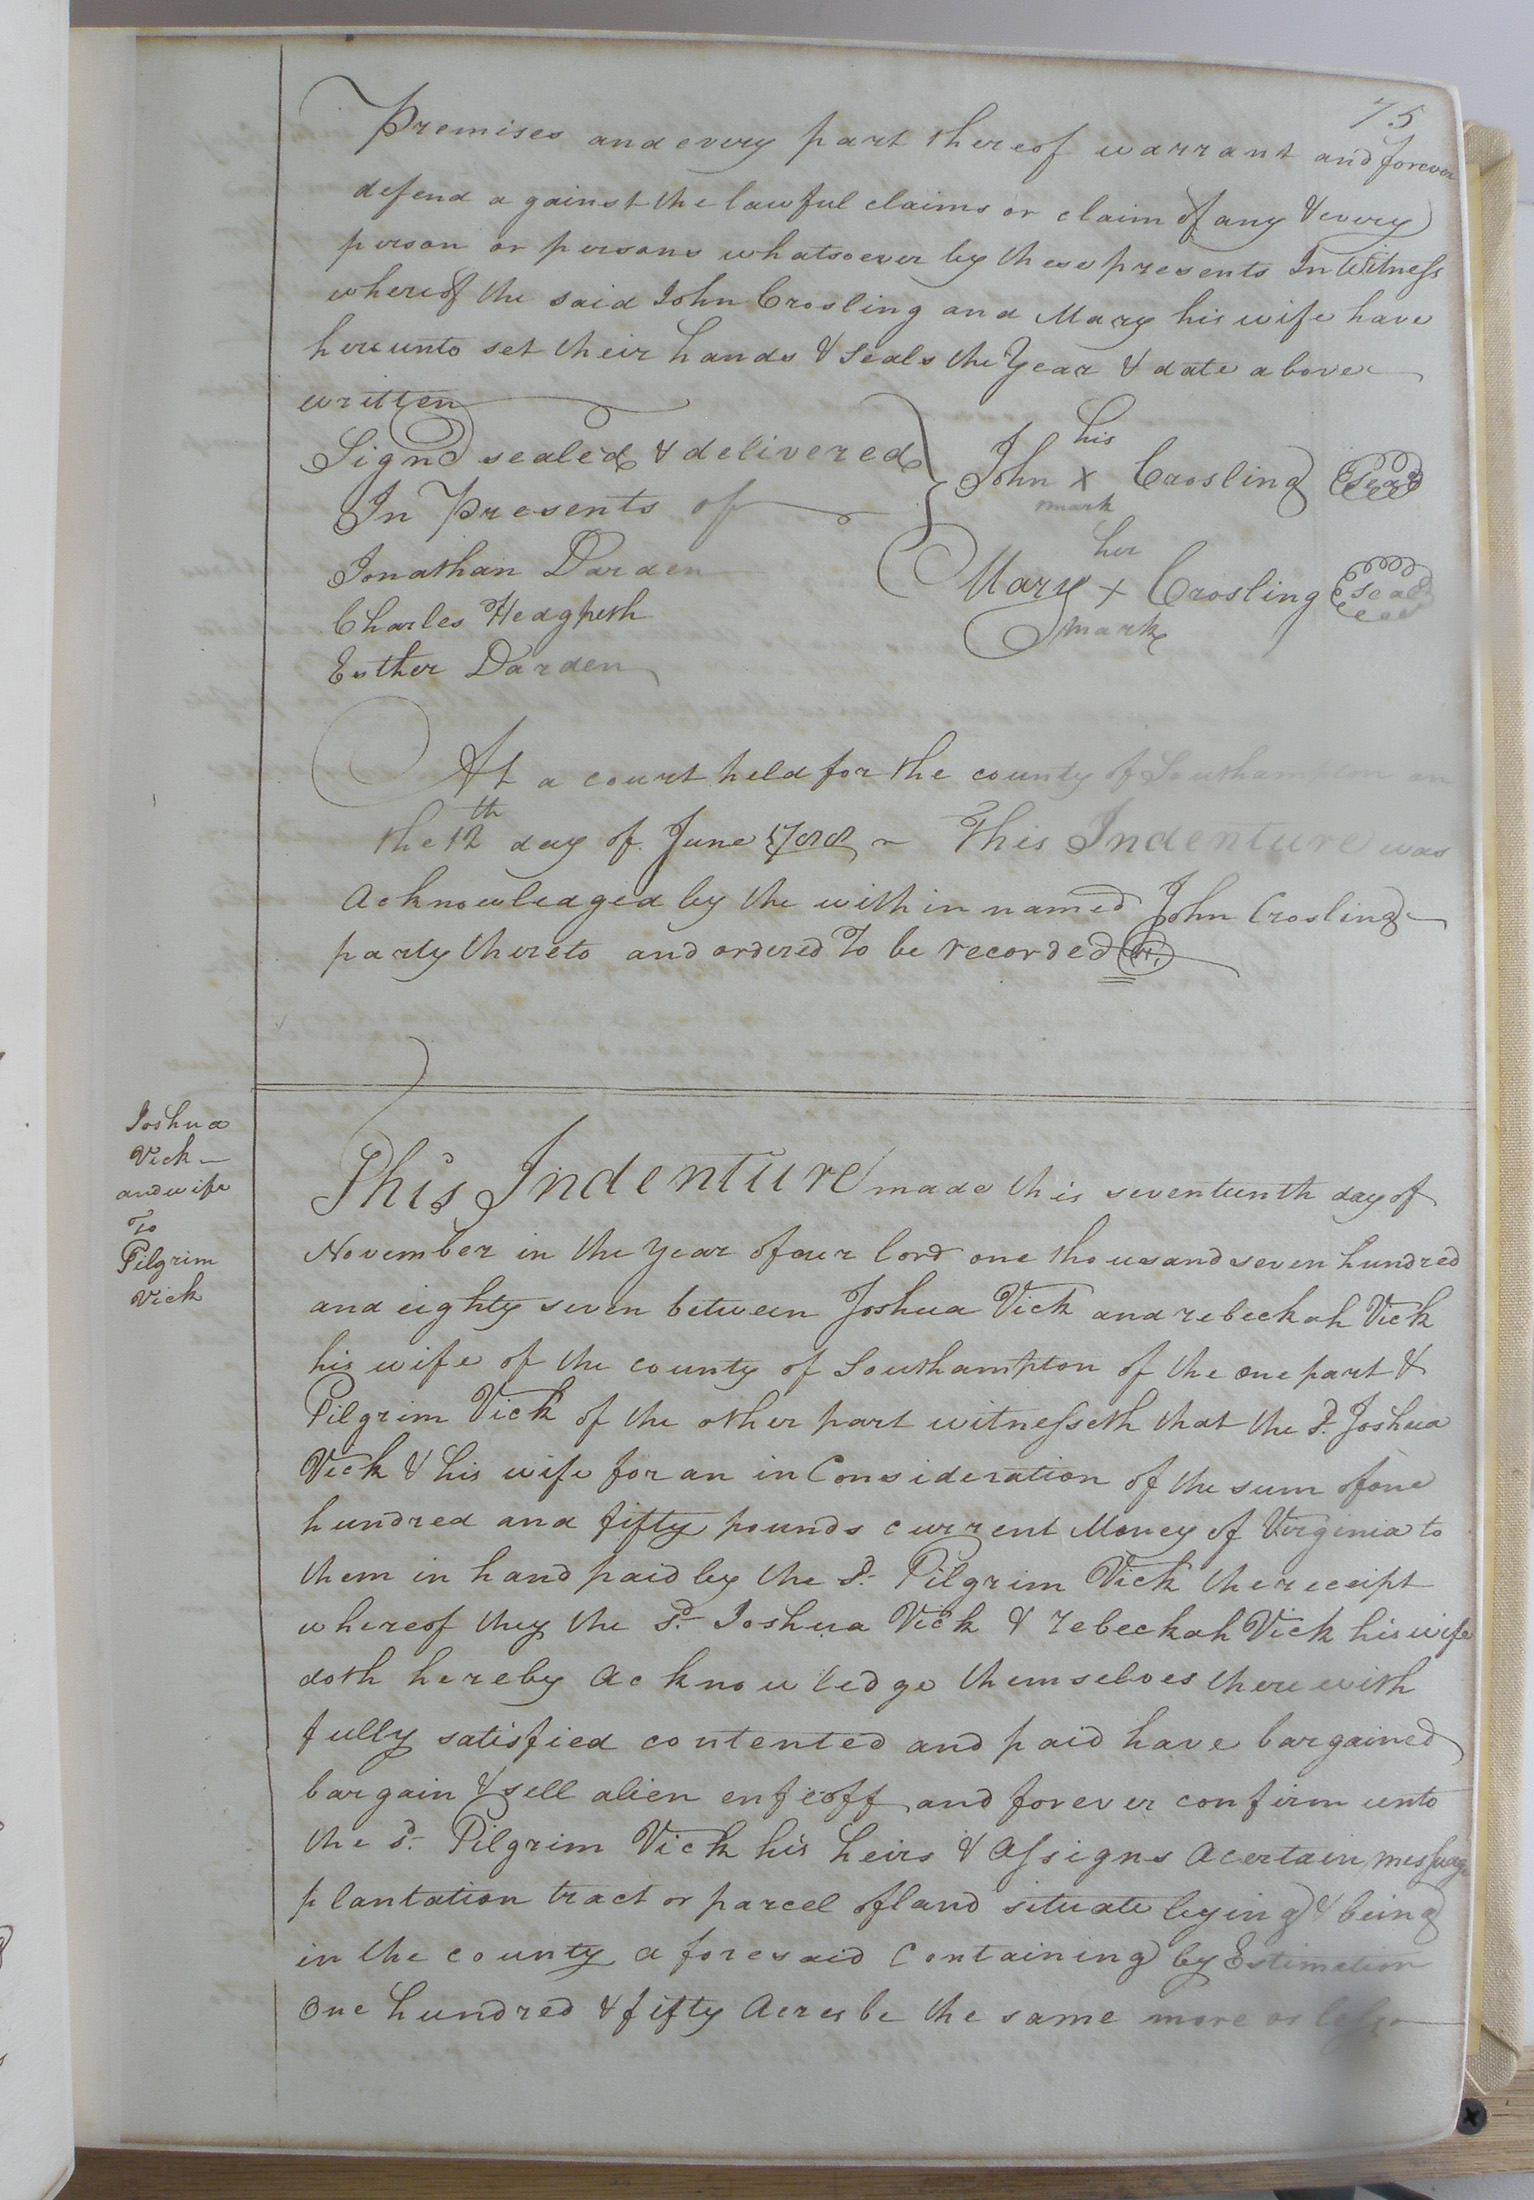 75
Premises and every part thereof warrant and forever
defend a gainst the lawful claims or claim of any & every
person or persons whatsoever by these presents In Witness
whereof the said John Crosling and Mary his wife have
hereunto set their hands & seals the Year & date above
written
Signd sealed & delivered
In Presents of
Jonathan Darden
Charles Hedgpeth
Esther Darden
his
John x Crosling seal
mark
her
Mary x Crosling seal
mark
At a court held for the county of Southampton on
the 12th day of June 1788 ~ This Indenture was
Acknowledged by the within named John Crosling
party thereto and ordered To be recorded
Joshua
Vick
and wife
To
Pilgrim
Vick
This Indenture made this seventeenth day of
November in the year of our lord one thousand seven hundred
and eighty seven between Joshua Vick and rebeckah Vick
his wife of the county of Southampton of the one part &
Pilgrim Vick of the other part witnesseth that the sd. Joshua
Vick & his wife for an in Consideration of the sum of one
hundred and fifty pounds current Money of Virginia to
them in hand paid by the sd. Pilgrim Vick the receipt
whereof they the sd. Joshua Vick & rebeckah Vick his wife
doth hereby acknowledge themselves there with
fully satisfied contented and paid have bargained
bargain & sell alien enfeoff and forever confirm unto
the sd. Pilgrim Vick his heirs & Assigns a certain messuage
plantation tract or parcel of land situate lying & being
in the county aforesaid Containing by Estimation
One hundred & fifty Acres be the same more or less